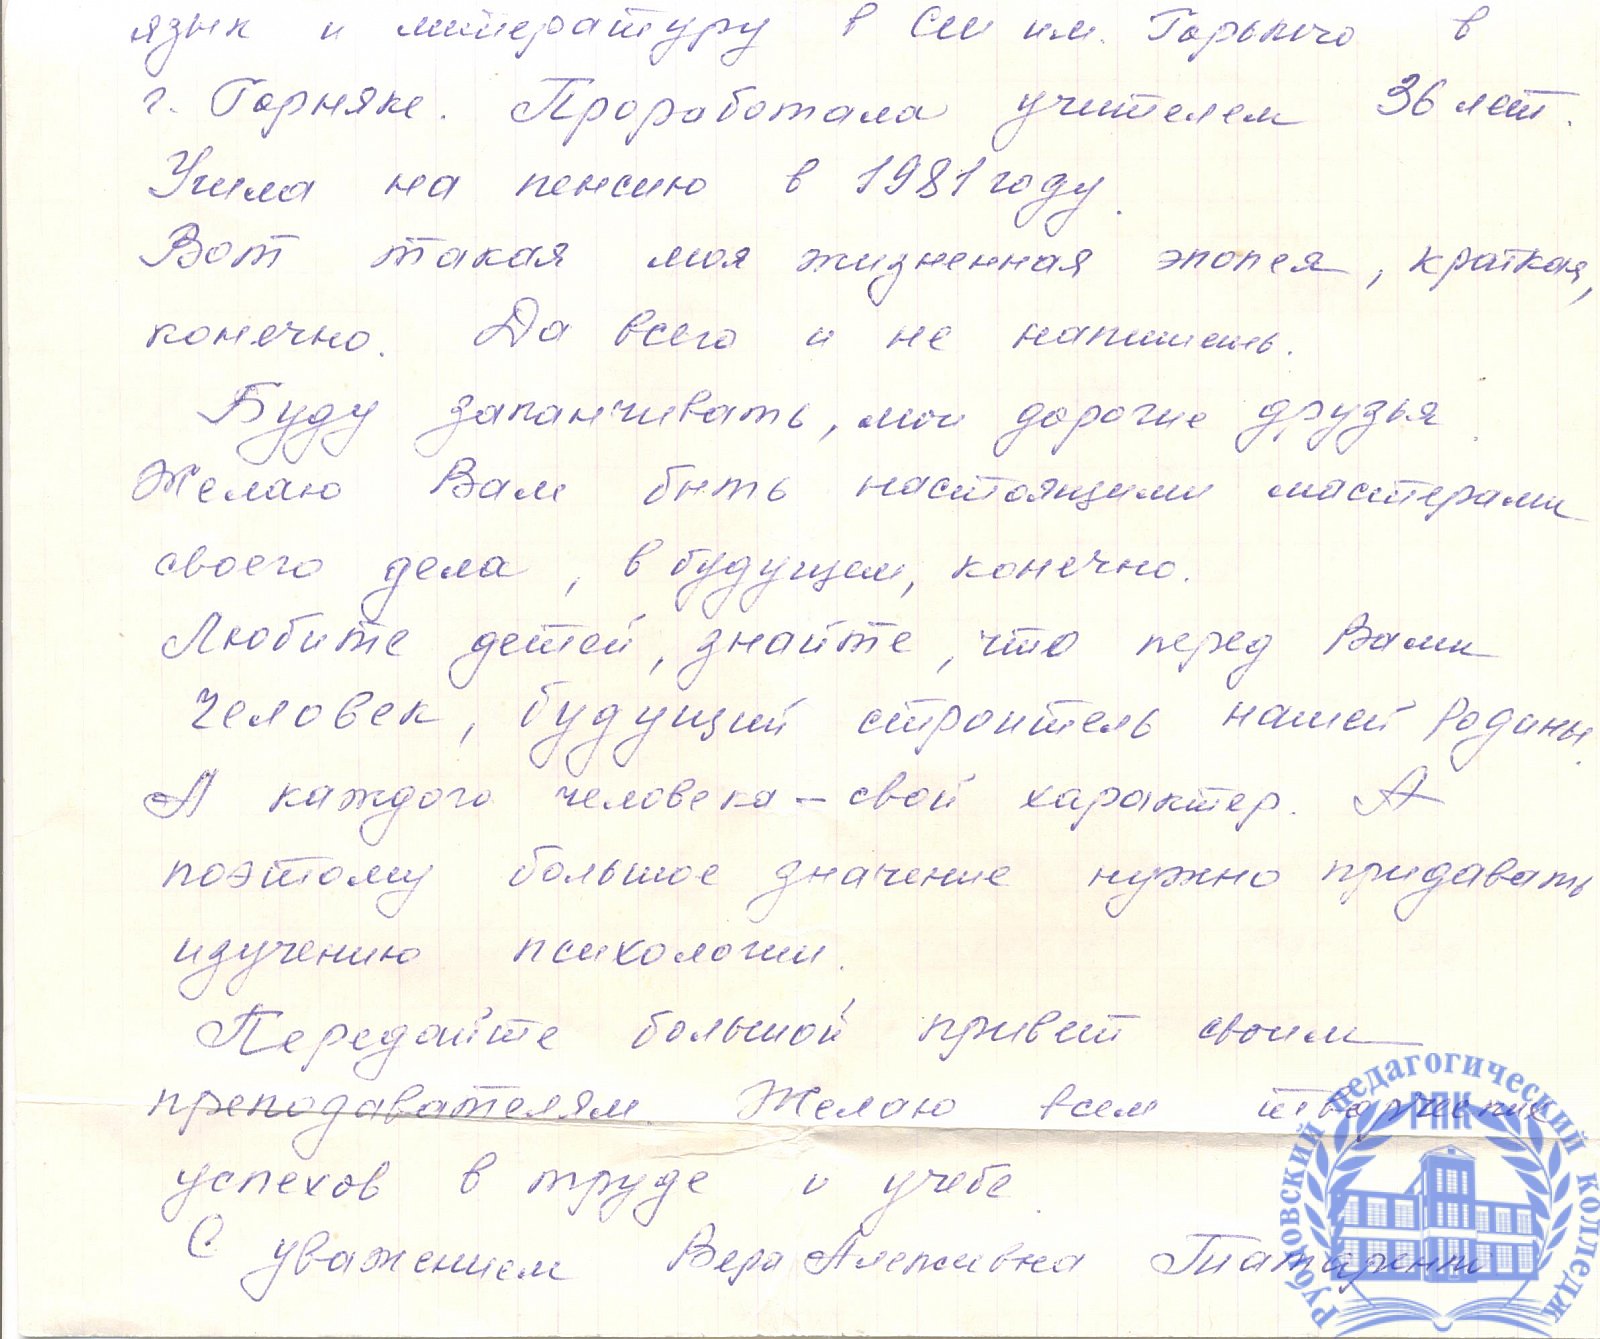 язык и литературу в СШ им. Горького в
г. Горняке. Проработала учителем 36 лет.
Ушла на пенсию в 1981 году.
Вот такая моя жизненная эпопея, краткая,
конечно. Да всего и не напишешь.
Буду заканчивать, мои дорогие друзья.
Желаю Вам быть настоящими мастерами
своего дела, в будущем, конечно.
Любите детей, знайте, что перед Вами
человек, будущий строитель нашей Родины.
А каждого человека – свой характер. А
поэтому большое значение нужно придавать
изучению психологии.
Передайте большой привет своим
преподавателям. Желаю всем творческих
успехов в труде и учебе.
С уважением Вера Алексеевна
Рубцовский педагогический колледж
РПК